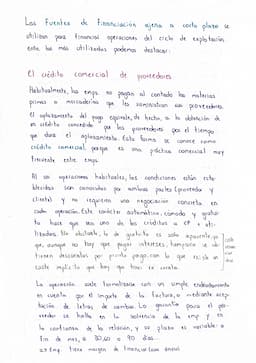 Las Fuentes de Financiación ajena a corto plazo se
utilizan para financiar operaciones del ciclo de explotación
entre las más utilizadas podemos destacar:
El crédito comercial de proveedores
Habitualmente, las emps. no pagan al contado las materias
primas o mercaderías que les suministran sus proveedores.
El aplazamiento del pago equivale, de hecho, a la obtención de
un crédito concedido por los proveedores por el tiempo
que dura el aplazamiento. Esta forma se conoce como
crédito comercial, porque es una práctica comercial muy
frecuente entre emps.
Al ser operaciones habituales, las condiciones están esta-
blecidas son conocidas por ambas partes (proveedor y
cliente) y no requiere una negociación concreta en
cada operación. Este carácter automático, cómodo y gratui-
to hace que sea uno de los créditos a CP + uti-
lizados. No obstante, lo de gratuito es solo aparente ya
que, aunque no hay que pagar intereses, tampoco se ob-
tienen descuentos por pronto pago, con lo que existe un
coste implícito que hay que tener en cuenta.
La operación suele formalizarse con un simple endeudamiento
en cuenta por el importe de la factura, o mediante acep-
tación de letras de cambio. La garantía para el pro-
veedor se halla en la solvencia de la emp y en
la confianza de la relación, y su plazo es variable: a
fin de mes, a 30, 60 o 90 días...